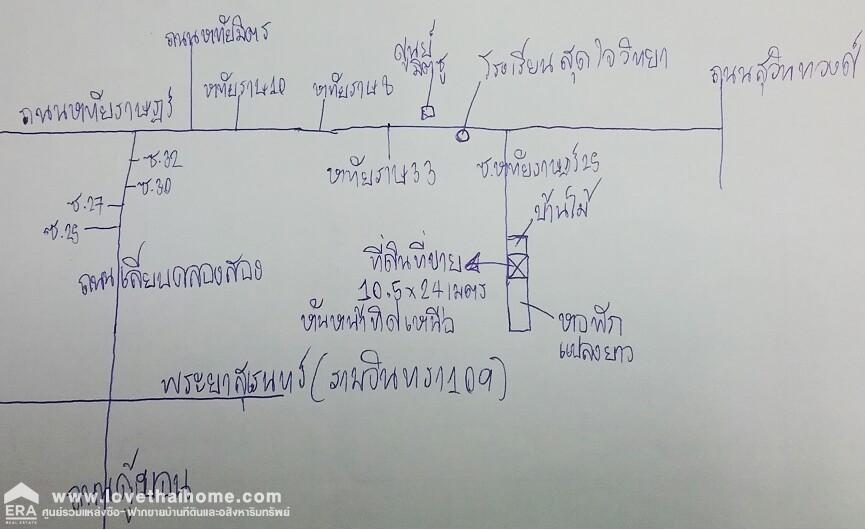 ถนนหทัยมิตร
ศูนย์
มิตซู
โรงเรียนสุดใจวิทยา
ถนนสุวินทวงศ์
หทัยราษ10
หทัยราษ8
ถนนหทัยราษฎร์
ซ.32
ซ.30
ซ.27
ซ.25
หทัยราษ33
ซ.หทัยราษฎร์25
บ้านไม้
ที่ดินที่ขาย
10.5x24เมตร
หันหน้าทิศเหนือ
ถนนเลียบคลองสอง
หอพัก
แปลงยาว
พระยาสุเรนทร์(รามอินทรา109)
ถนนคู้บอน
ERA
REAL ESTATE
www.lovethaihome.com
ศูนย์รวมแหล่งซื้อ-ฝากขายบ้านที่ดินและอสังหาริมทรัพย์